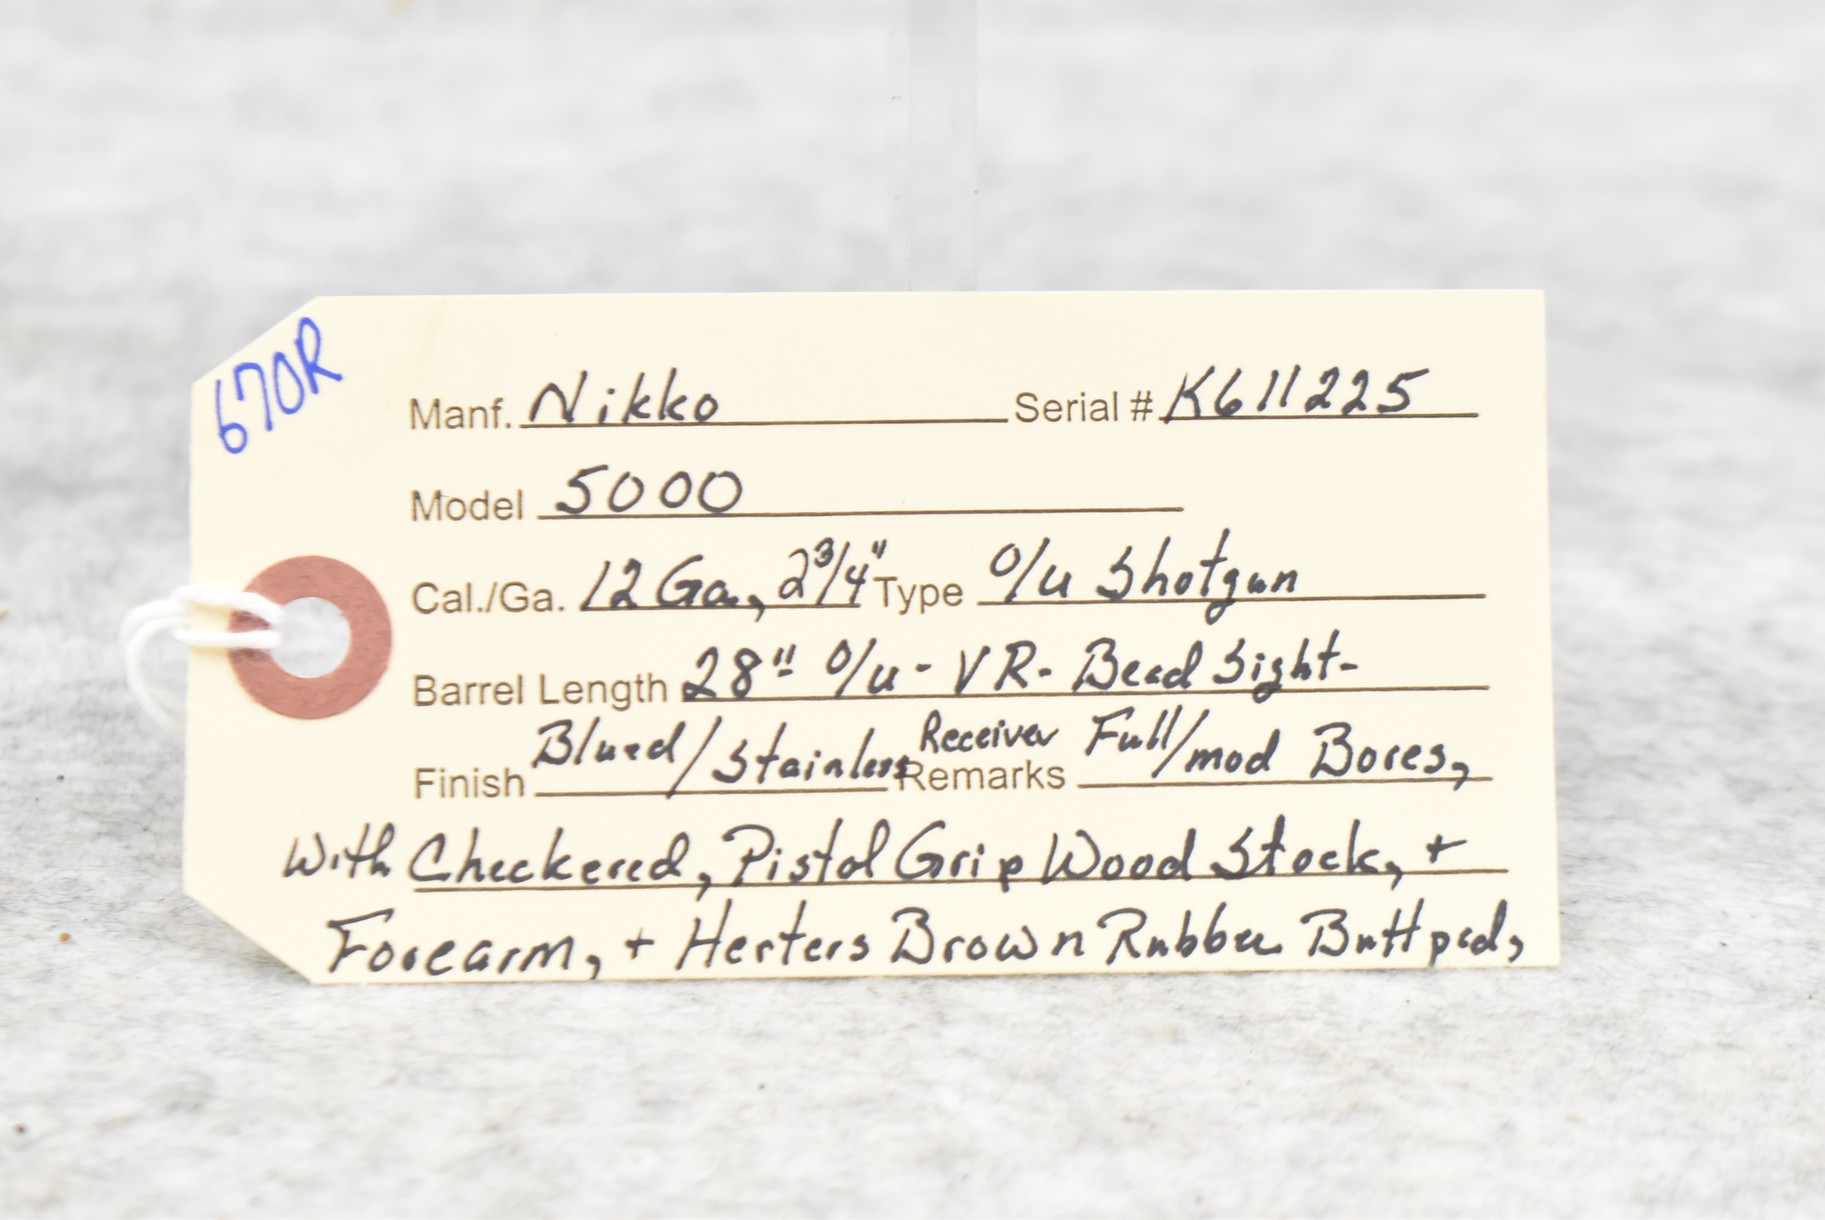 670R
Manf. Nikko Serial # K611225
Model 5000
Cal./Ga. 12 Ga., 2 3/4" Type O/u Shotgun
Barrel Length 28" O/u - VR - Bead Sight -
Finish Blued/Stainless Receiver Remarks Full/mod Bores,
With Checkered, Pistol Grip Wood Stock, +
Forearm, + Herters Brown Rubber Buttpad,